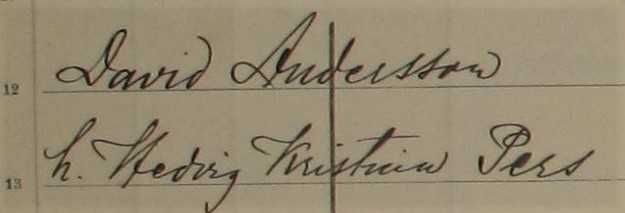 12 David Andersson
13 h. Hedvig Kristina Pers